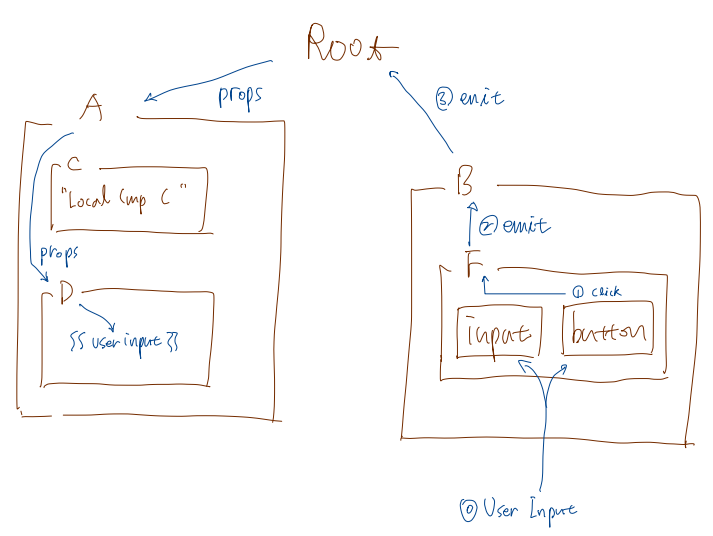 Root
props
③ emit
A
C
"Local Cmp C"
props
D
{{ user input }}
B
② emit
F
① click
input
button
⓪ User Input